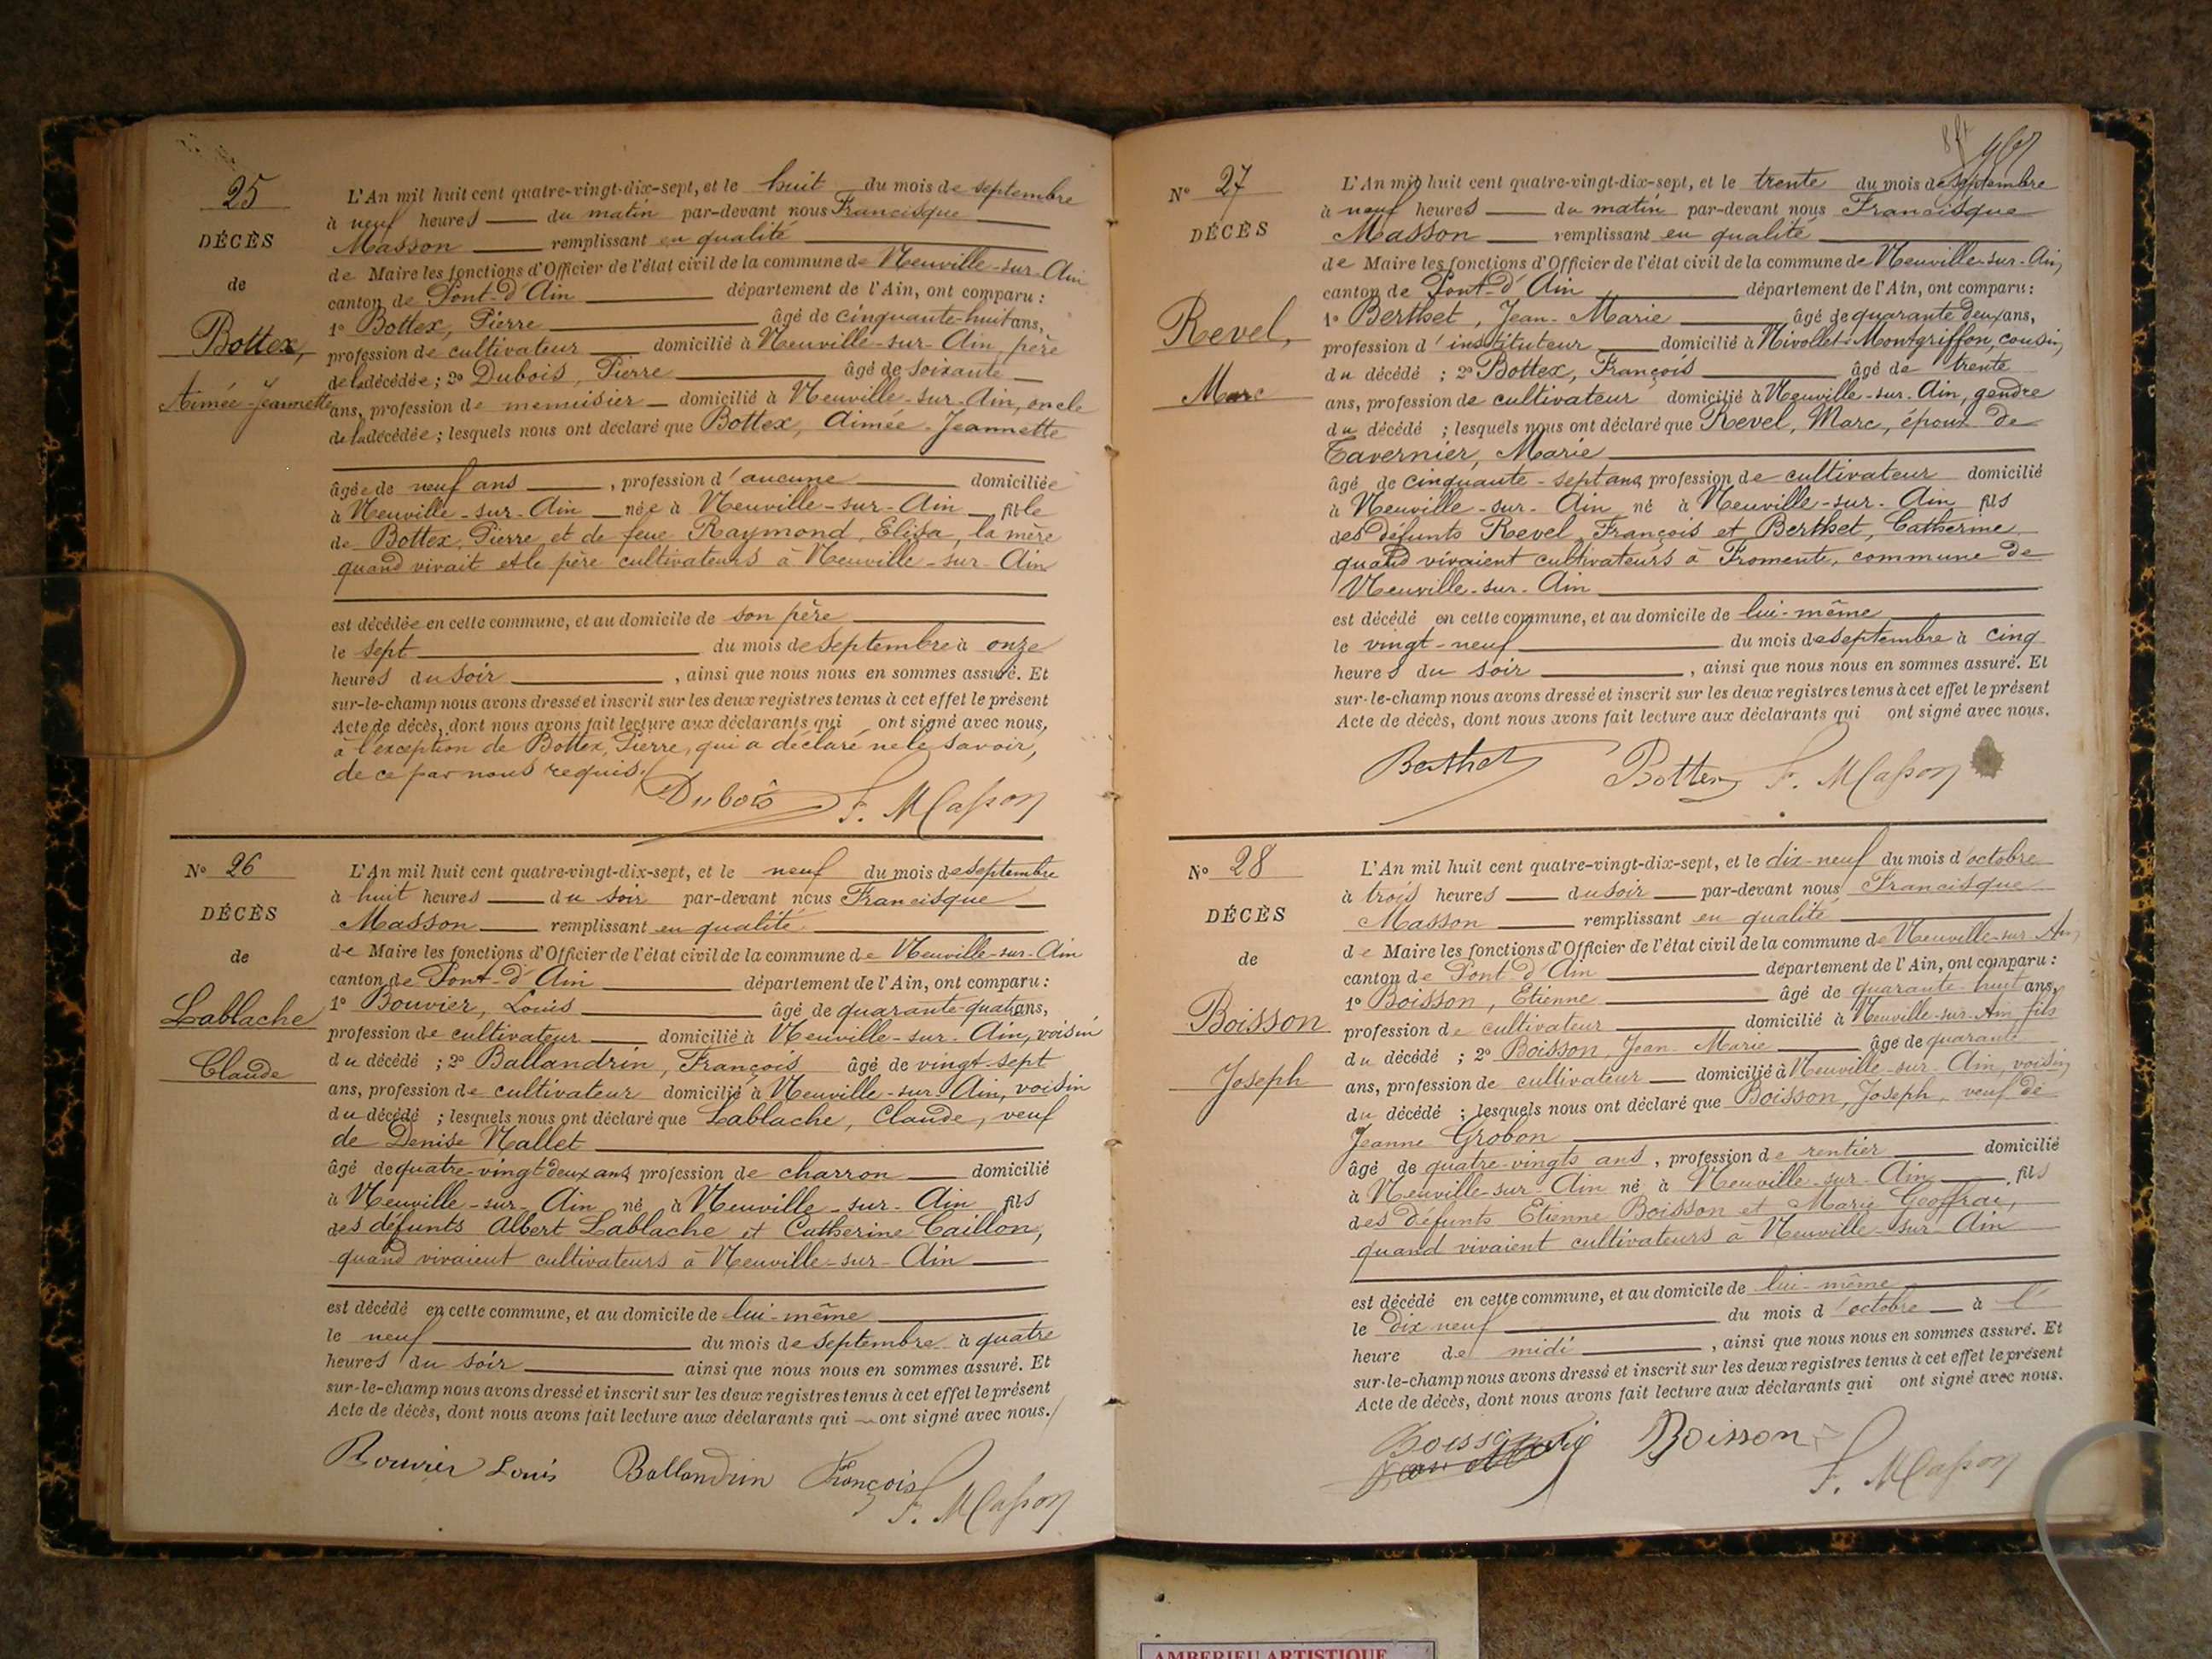 25
DÉCÈS
de
Bottex,
Aimée-Jeannette
L'An mil huit cent quatre-vingt-dix-sept, et le huit du mois de septembre
à neuf heures du matin par-devant nous Francisque
Masson remplissant en qualité
de Maire les fonctions d'Officier de l'état civil de la commune de Neuville-sur-Ain
canton de Pont-d'Ain département de l'Ain, ont comparu :
1º Bottex, Pierre âgé de cinquante-huit ans,
profession de cultivateur domicilié à Neuville-sur-Ain père
de la décédée ; 2º Dubois, Pierre âgé de soixante
ans, profession de menuisier domicilié à Neuville-sur-Ain, oncle
de la décédée ; lesquels nous ont déclaré que Bottex, Aimée-Jeannette
âgée de neuf ans, profession d'aucune domiciliée
à Neuville-sur-Ain née à Neuville-sur-Ain fille
de Bottex, Pierre et de feue Raymond, Elisa, la mère
quand vivait et le père cultivateurs à Neuville-sur-Ain
est décédée en cette commune, et au domicile de son père
le sept du mois de septembre à onze
heures du soir, ainsi que nous nous en sommes assuré. Et
sur-le-champ nous avons dressé et inscrit sur les deux registres tenus à cet effet le présent
Acte de décès, dont nous avons fait lecture aux déclarants qui ont signé avec nous,
à l'exception de Bottex, Pierre, qui a déclaré ne le savoir,
de ce par nous requis.
Dubois F. Masson
Nº 26
DÉCÈS
de
Lablache
Claude
L'An mil huit cent quatre-vingt-dix-sept, et le neuf du mois de septembre
à huit heures du soir par-devant nous Francisque
Masson remplissant en qualité
de Maire les fonctions d'Officier de l'état civil de la commune de Neuville-sur-Ain
canton de Pont-d'Ain département de l'Ain, ont comparu :
1º Bouvier, Louis âgé de quarante-quat ans,
profession de cultivateur domicilié à Neuville-sur-Ain, voisin
du décédé ; 2º Ballandrin, François âgé de vingt-sept
ans, profession de cultivateur domicilié à Neuville-sur-Ain, voisin
du décédé ; lesquels nous ont déclaré que Lablache, Claude, veuf
de Denise Nallet
âgé de quatre-vingt deux ans, profession de charron domicilié
à Neuville-sur-Ain né à Neuville-sur-Ain fils
des défunts Albert Lablache et Catherine Caillon,
quand vivaient cultivateurs à Neuville-sur-Ain
est décédé en cette commune, et au domicile de lui-même
le neuf du mois de septembre à quatre
heures du soir ainsi que nous nous en sommes assuré. Et
sur-le-champ nous avons dressé et inscrit sur les deux registres tenus à cet effet le présent
Acte de décès, dont nous avons fait lecture aux déclarants qui ont signé avec nous.
Bouvier Louis Ballandrin François F. Masson
Nº 27
DÉCÈS
Revel,
Marc
L'An mil huit cent quatre-vingt-dix-sept, et le trente du mois de septembre
à neuf heures du matin par-devant nous Francisque
Masson remplissant en qualité
de Maire les fonctions d'Officier de l'état civil de la commune de Neuville-sur-Ain,
canton de Pont-d'Ain département de l'Ain, ont comparu :
1º Berthet, Jean-Marie âgé de quarante deux ans,
profession d'instituteur domicilié à Nivollet-Montgriffon, cousin
du décédé ; 2º Bottex, François âgé de trente
ans, profession de cultivateur domicilié à Neuville-sur-Ain, gendre
du décédé ; lesquels nous ont déclaré que Revel, Marc, époux de
Tavernier, Marie
âgé de cinquante-sept ans, profession de cultivateur domicilié
à Neuville-sur-Ain né à Neuville-sur-Ain fils
des défunts Revel, François et Berthet, Catherine
quand vivaient cultivateurs à Fromente, commune de
Neuville-sur-Ain
est décédé en cette commune, et au domicile de lui-même
le vingt-neuf du mois de septembre à cinq
heures du soir, ainsi que nous nous en sommes assuré. Et
sur-le-champ nous avons dressé et inscrit sur les deux registres tenus à cet effet le présent
Acte de décès, dont nous avons fait lecture aux déclarants qui ont signé avec nous.
Berthet Bottex F. Masson
Nº 28
DÉCÈS
de
Boisson
Joseph
L'An mil huit cent quatre-vingt-dix-sept, et le dix-neuf du mois d'octobre
à trois heures du soir par-devant nous Francisque
Masson remplissant en qualité
de Maire les fonctions d'Officier de l'état civil de la commune de Neuville-sur-Ain,
canton de Pont d'Ain département de l'Ain, ont comparu :
1º Boisson, Etienne âgé de quarante-huit ans,
profession de cultivateur domicilié à Neuville-sur-Ain fils
du décédé ; 2º Boisson, Jean-Marie âgé de quarante
ans, profession de cultivateur domicilié à Neuville-sur-Ain, voisin
du décédé ; lesquels nous ont déclaré que Boisson, Joseph, veuf de
Jeanne Grobon
âgé de quatre-vingts ans, profession de rentier domicilié
à Neuville-sur-Ain né à Neuville-sur-Ain fils
des défunts Etienne Boisson et Marie Geoffrai,
quand vivaient cultivateurs à Neuville-sur-Ain
est décédé en cette commune, et au domicile de lui-même
le dix neuf du mois d'octobre à l'
heure de midi, ainsi que nous nous en sommes assuré. Et
sur-le-champ nous avons dressé et inscrit sur les deux registres tenus à cet effet le présent
Acte de décès, dont nous avons fait lecture aux déclarants qui ont signé avec nous.
Boisson Boisson
F. Masson
AMBERIEU ARTISTIQUE